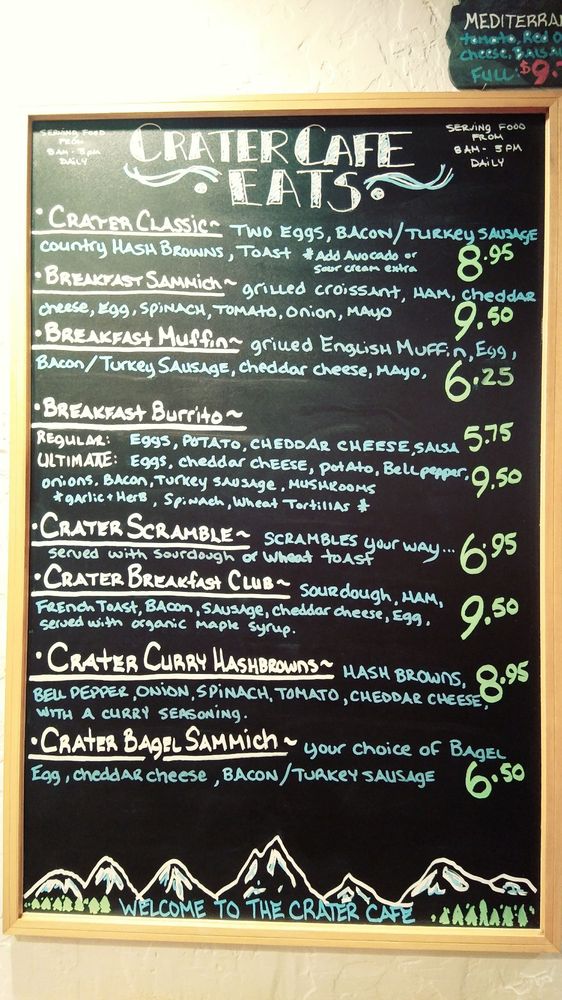 MEDITERRA
tomato, Red O
cheese, BALSA
FULL: $9.
SERVING FOOD
FROM
8AM - 5PM
DAILY
CRATER CAFE
• EATS •
SERVING FOOD
FROM
8AM - 5PM
DAILY
• CRATER CLASSIC~ TWO EGGS, BACON/TURKEY SAUSAGE
country HASH BROWNS, TOAST * Add Avocado or
sour cream extra 8.95
• BREAKFAST SAMMICH~ grilled croissant, HAM, cheddar
cheese, Egg, SPINACH, TOMATO, Onion, MAYO 9.50
• BREAKFAST MUFFIN~ grilled ENGLISH MUFFIN, Egg,
BACON/TURKEY SAUSAGE, cheddar cheese, MAYO, 6.25
• BREAKFAST BURRITO~
REGULAR: Eggs, POTATO, CHEDDAR CHEESE, SALSA 5.75
ULTIMATE: Eggs, cheddar cheese, potato, Bell pepper,
onions, BACON, Turkey SAUSAGE, MUSHROOMS 9.50
*garlic + HERB, Spinach, Wheat Tortillas *
• CRATER SCRAMBLE~ SCRAMBLES your way...
served with sourdough or wheat toast 6.95
• CRATER BREAKFAST CLUB~ Sourdough, HAM,
FRENCH TOAST, BACON, SAUSAGE, cheddar cheese, Egg, 9.50
served with organic Maple syrup.
• CRATER CURRY HASHBROWNS~ HASH BROWNS,
BELL PEPPER, ONION, SPINACH, TOMATO, CHEDDAR CHEESE, 8.95
WITH A CURRY SEASONING.
• CRATER BAGEL SAMMICH~ your choice of BAGEL
Egg, cheddar cheese, BACON/TURKEY SAUSAGE 6.50
WELCOME TO THE CRATER CAFE